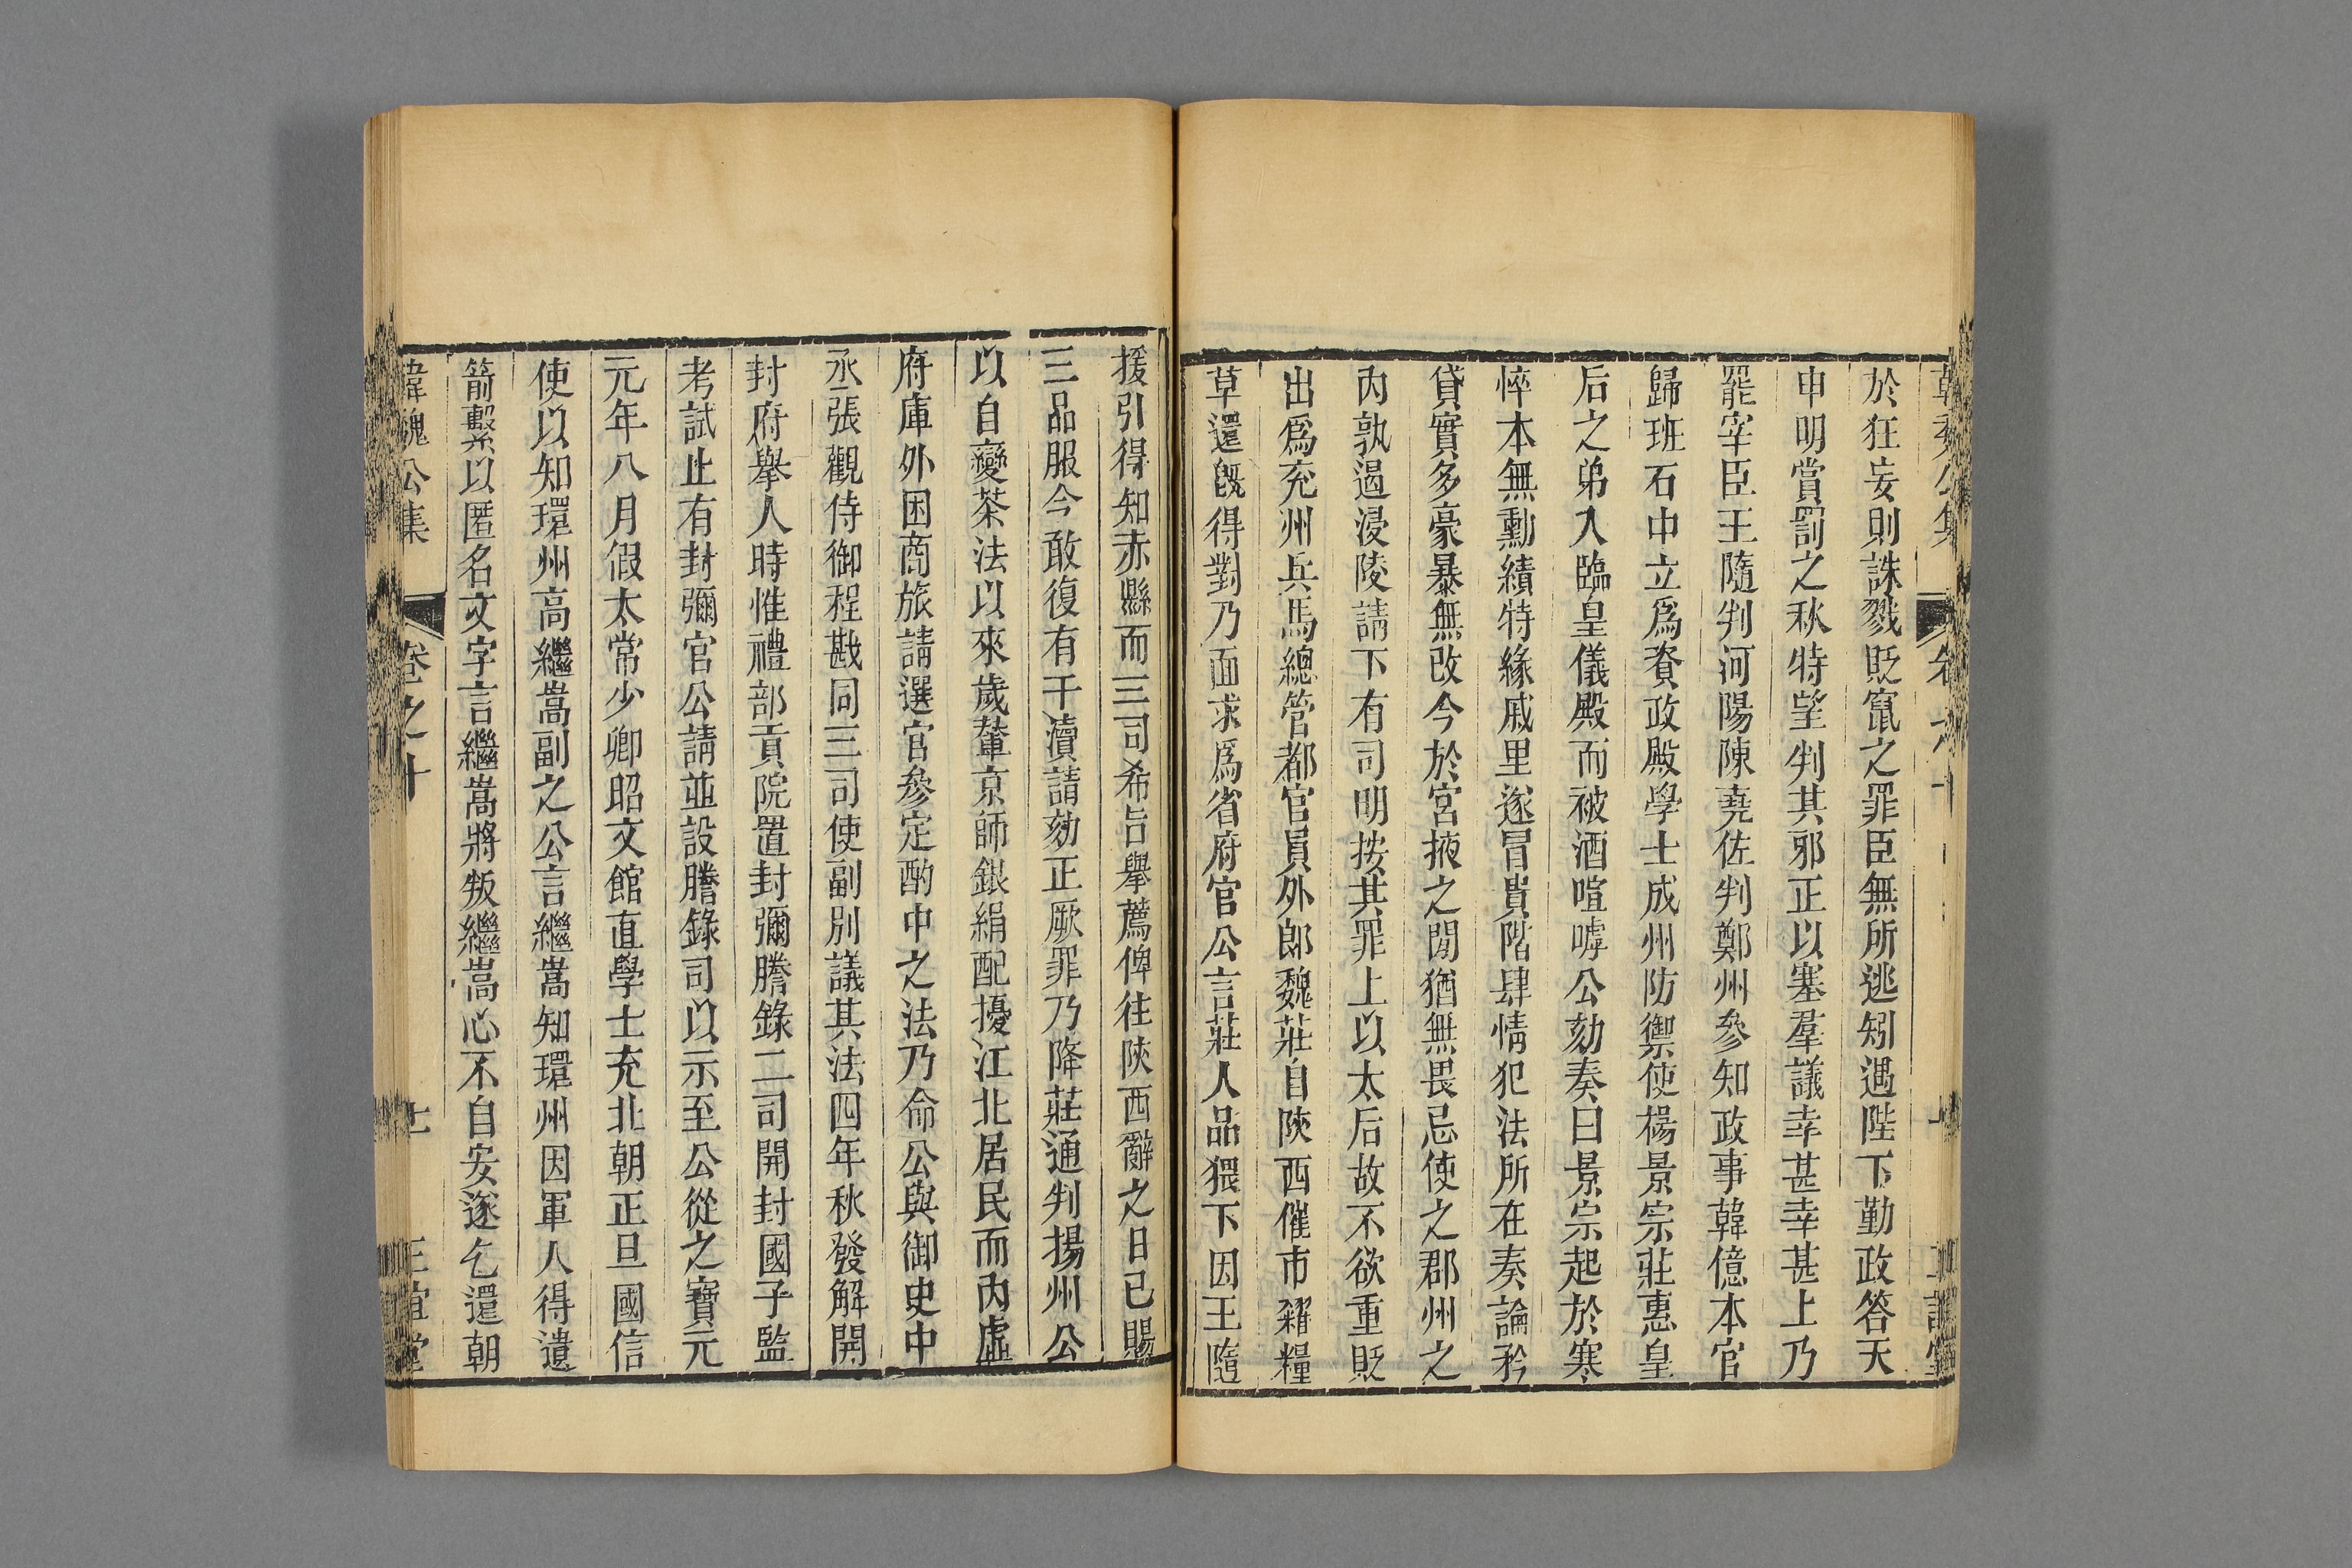 於狂妄則誅戮貶竄之罪臣無所逃矧遇陛下勤政答天
申明賞罰之秋特望判其邪正以塞羣議幸甚幸甚上乃
罷宰臣王隨判河陽陳堯佐判鄭州參知政事韓億本官
歸班石中立爲資政殿學士成州防禦使楊景宗莊惠皇
后之弟入臨皇儀殿而被酒喧嘑公劾奏曰景宗起於寒
悴本無勳績特緣戚里遂冒貴階肆情犯法所在奏論矜
貸實多豪暴無改今於宮掖之閒猶無畏忌使之郡州之
內孰遏浸陵請下有司明按其罪上以太后故不欲重貶
出爲充州兵馬總管都官員外郎魏莊自陝西催市糴糧
草還旣得對乃面求爲省府官公言莊人品猥下因王隨
援引得知赤縣而三司希旨舉薦俾往陝西辭之日已賜
三品服今敢復有干瀆請劾正厥罪乃降莊通判揚州公
以自變茶法以來歲輦京師銀絹配擾江北居民而內虛
府庫外困商旅請選官參定酌中之法乃命公與御史中
丞張觀侍御程戡同三司使副別議其法四年秋發解開
封府舉人時惟禮部貢院置封彌謄錄二司開封國子監
考試止有封彌官公請並設謄錄司以示至公從之寶元
元年八月假太常少卿昭文館直學士充北朝正旦國信
使以知環州高繼嵩副之公言繼嵩知環州因軍人得遺
箭繫以匿名文字言繼嵩將叛繼嵩心不自安遂乞還朝
韓魏公集 卷之十 正誼堂